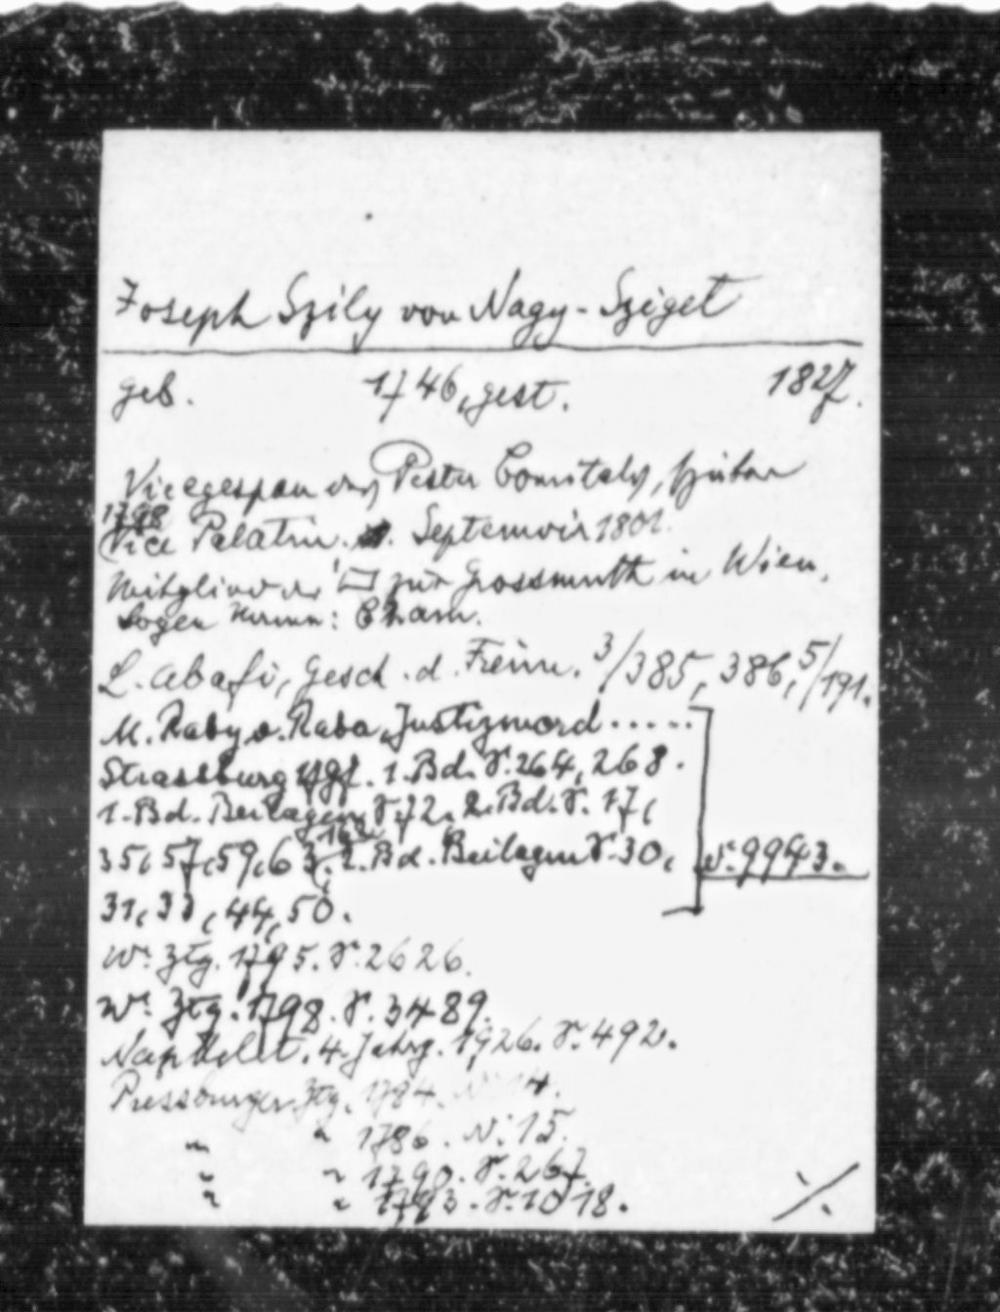 Joseph Szily von Nagy-Sziget
geb. 1746, gest. 1827.
Vicegespan des Pester Comitats, später
1798
Vice Palatin. Septemvir 1801.
Mitglied der □ zur Grossmuth in Wien,
Logen Namen: Cham.
L. Abafi, Gesch. d. Freim. 3/385, 386, 5/191.
M. Raby v. Raba, Justizmord .....
Strassburg 1797. 1. Bd. S. 264, 268.
1. Bd. Beilagen S. 72, 2. Bd. S. 17,
35, 57, 59, 63, 168. 2. Bd. Beilagen S. 30, N. 9943.
31, 33, 44, 50.
Wr. Ztg. 1795. S. 2626.
Wr. Ztg. 1798. S. 3489.
Napkelet. 4. Jahrg. 1926. S. 492.
Pressburger Ztg. 1784. N. 14.
" " 1786. N. 15.
" " 1790. S. 267.
" " 1793. S. 1018. ./.